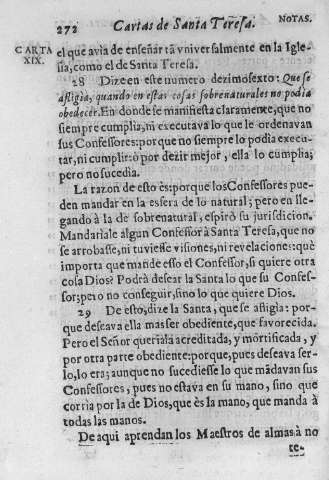 272 Cartas de Santa Teresa. NOTAS.
CARTA XIX.
el que avia de enseñar tã vniversalmente en la Igle-
sia, como el de Santa Teresa.
28 Dize en este numero dezimosexto: Que se
afligia, quando en estas cosas sobrenaturales no podia
obedecer. En donde se manifiesta claramente, que no
siempre cumplia, ni executava lo que le ordenavan
sus Confessores: porque no siempre lo podia execu-
tar, ni cumplir: ò por dezir mejor, ella lo cumplia;
pero no sucedia.
La razon de esto ès: porque los Confessores pue-
den mandar en la esfera de lo natural; pero en lle-
gando à la de sobrenatural, espirò su jurisdicion.
Mandariale algun Confessor à Santa Teresa, que no
se arrobasse, ni tuviesse visiones, ni revelaciones: què
importa que mande esso el Confessor, si quiere otra
cosa Dios? Podrà desear la Santa lo que su Confes-
sor; pero no conseguir, sino lo que quiere Dios.
29 De esto, dize la Santa, que se afligia: por-
que deseava ella mas ser obediente, que favorecida.
Pero el Señor queriala acreditada, y mortificada, y
por otra parte obediente: porque, pues deseava ser-
lo, lo era; aunque no sucediesse lo que mãdavan sus
Confessores, pues no estava en su mano, sino que
corria por la de Dios, que ès la mano, que manda à
todas las manos.
De aqui aprendan los Maestros de almas à no
te-